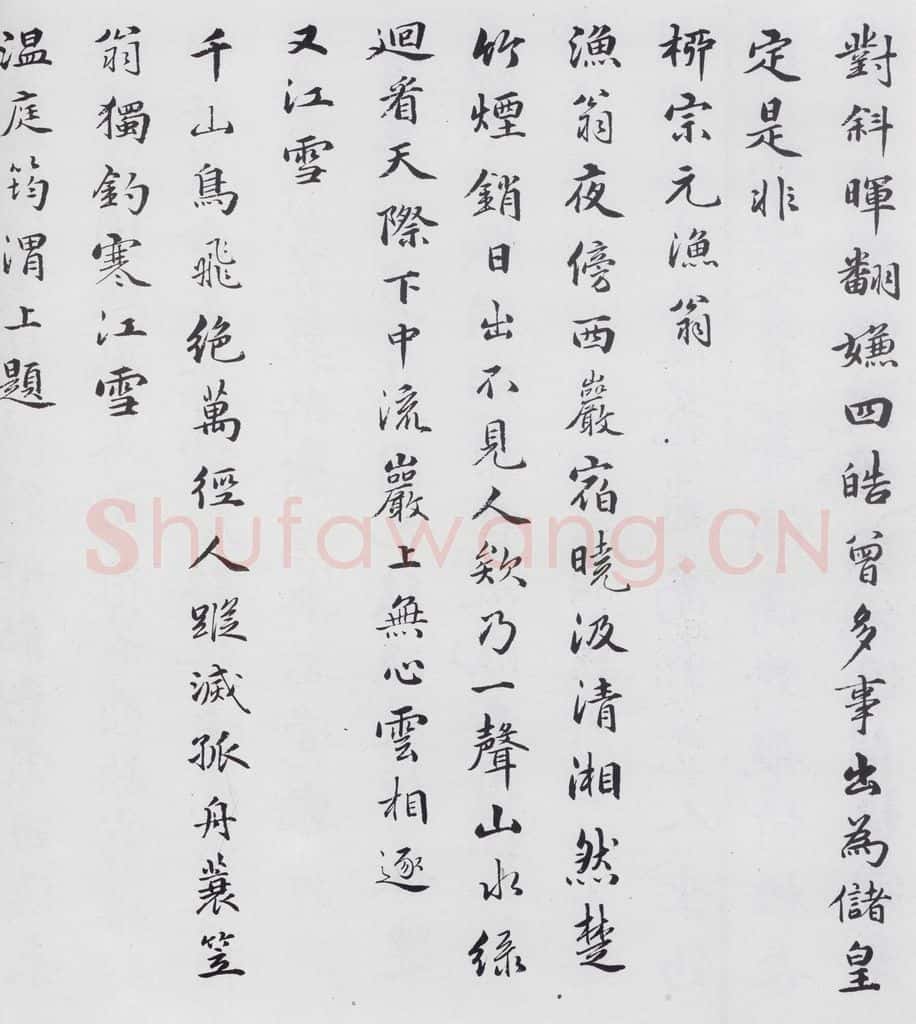 對斜暉翻嫌四皓曾多事出為儲皇
定是非
柳宗元漁翁
漁翁夜傍西巖宿曉汲清湘然楚
竹煙銷日出不見人欸乃一聲山水綠
迴看天際下中流巖上無心雲相逐
又江雪
千山鳥飛絶萬徑人蹤滅孤舟蓑笠
翁獨釣寒江雪
温庭筠渭上題
Shufawang.CN